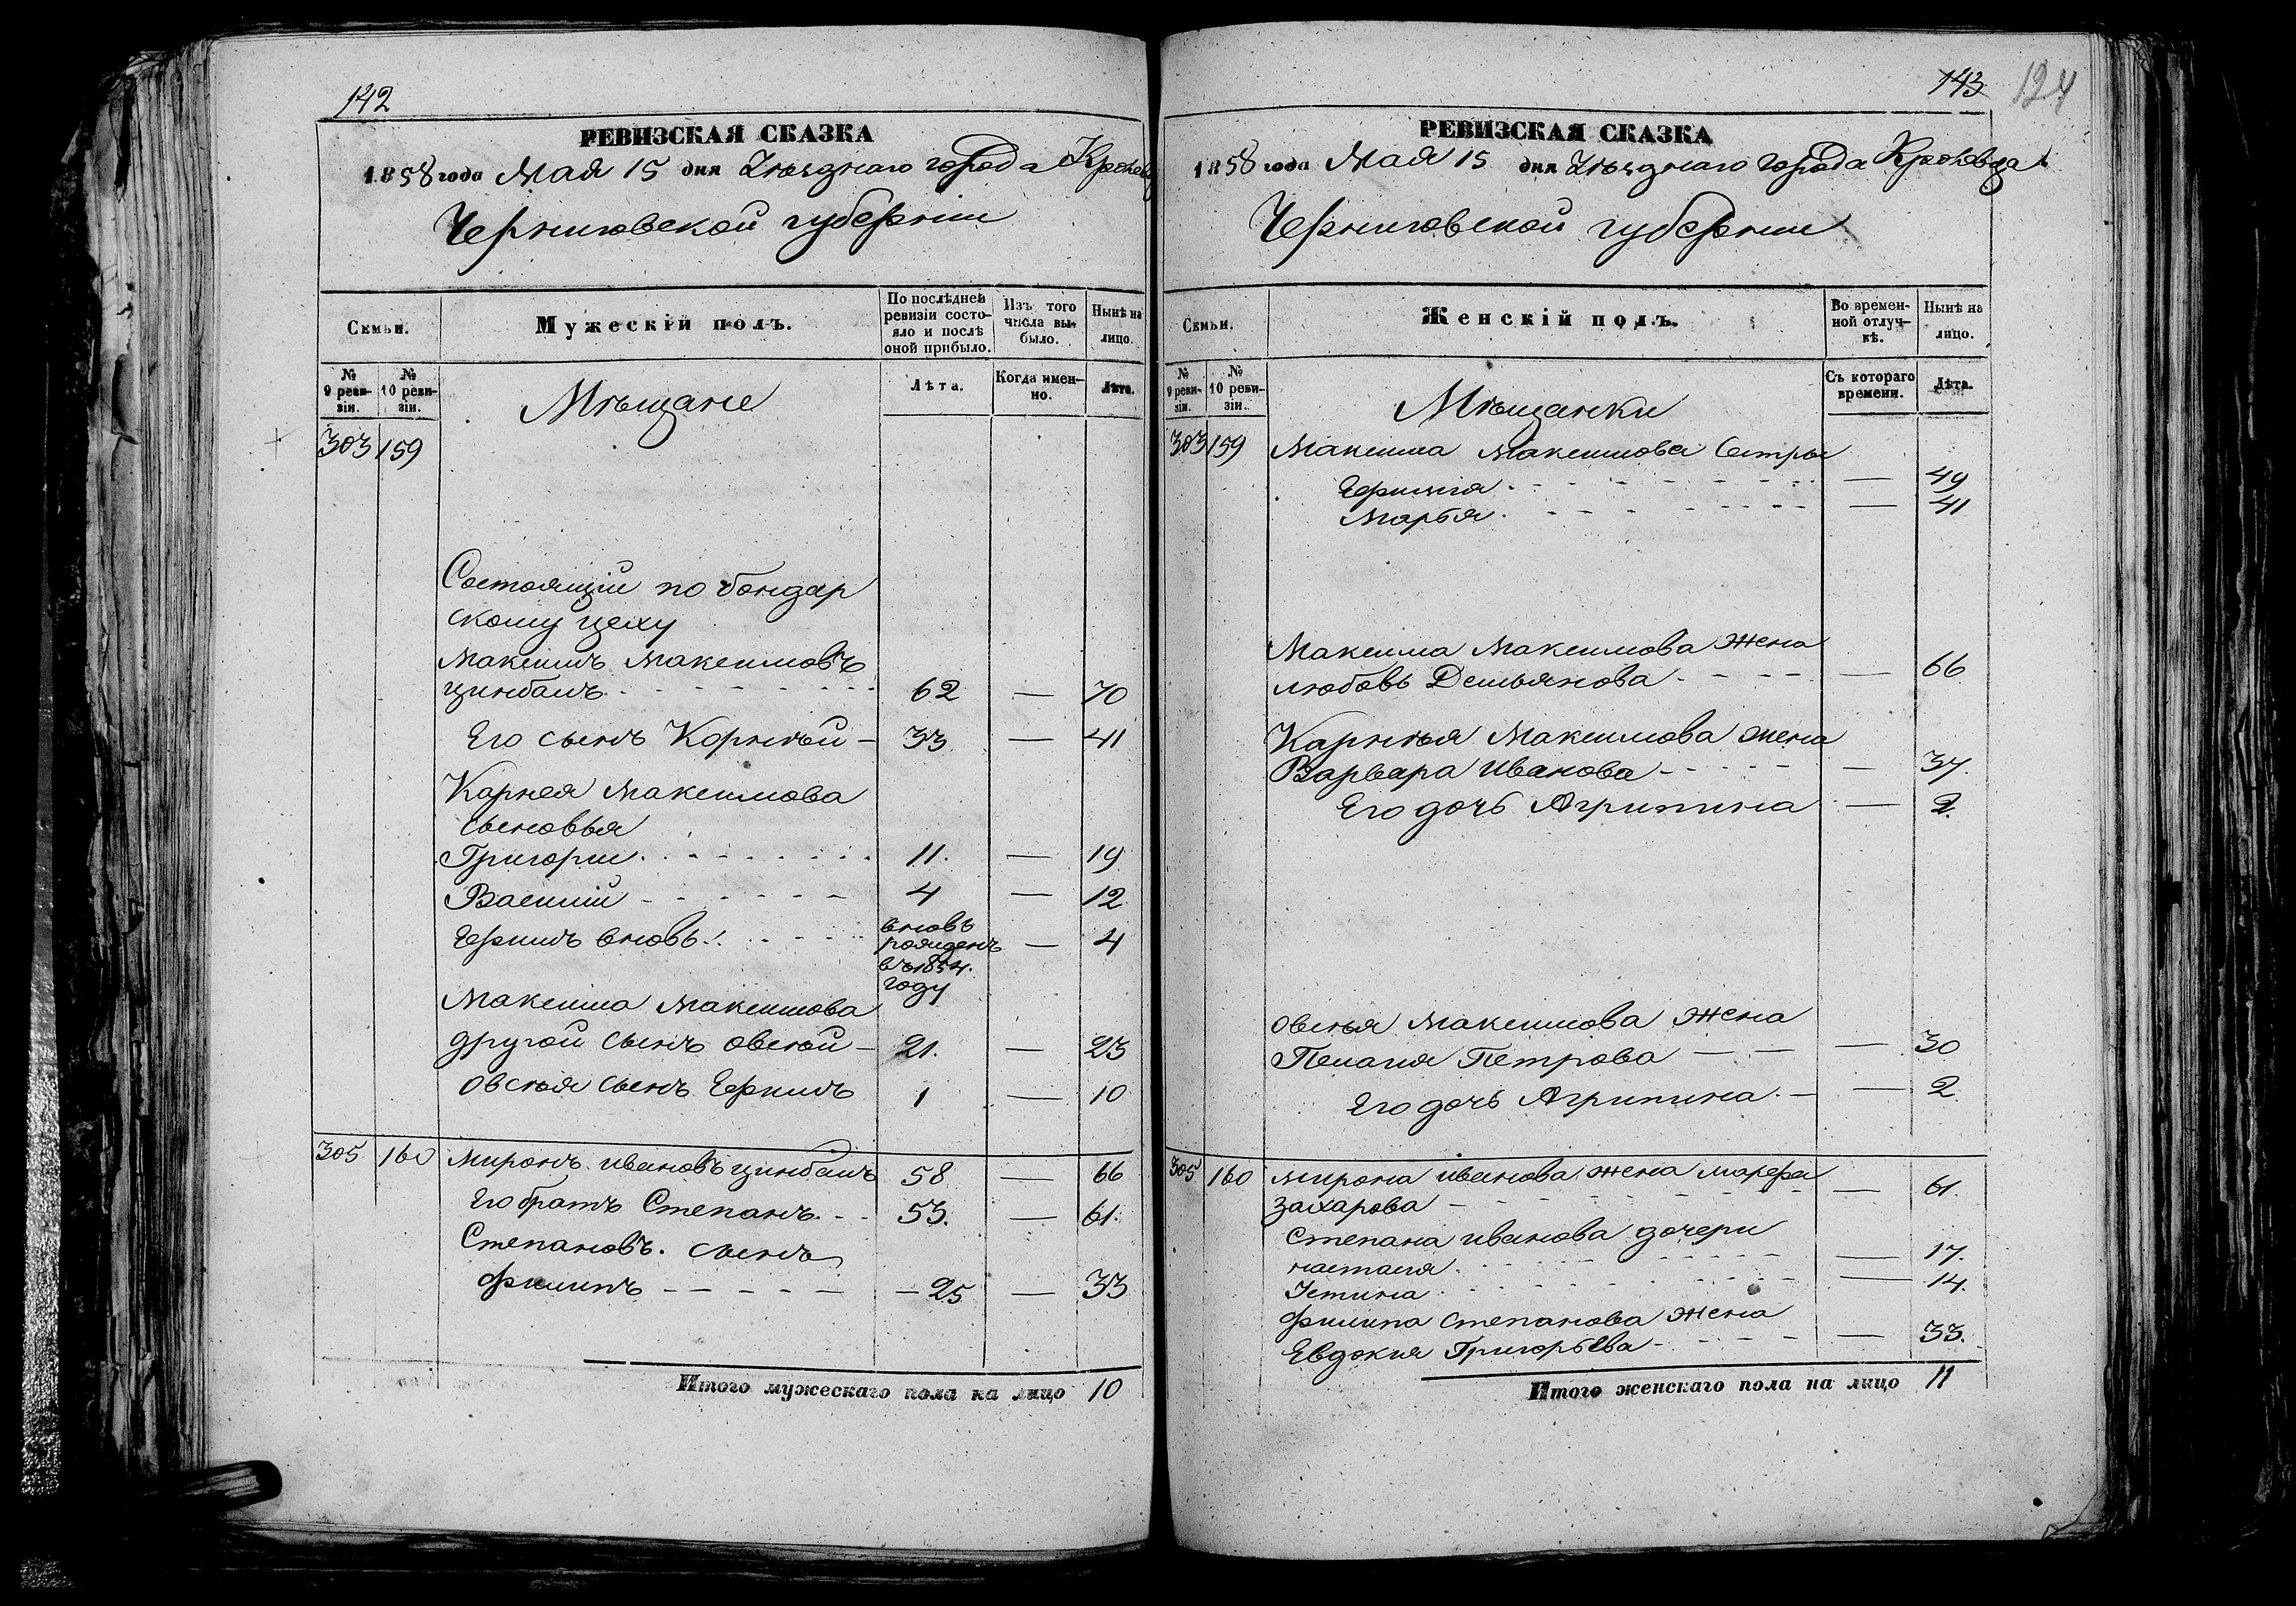 142
РЕВИЗСКАЯ СКАЗКА
1858 года Мая 15 дня Уѣзднаго города
Черниговской губерніи
Семьи.
Мужескій полъ.
По послѣдней ревизіи состояло и послѣ оной прибыло.
Изъ того числа выбыло.
Нынѣ на лицо.
№ 9 ревизіи.
№ 10 ревизіи.
Мѣщане
Лѣта.
Когда именно.
Лѣта.
303 159
Состоящіи по бондар
скому цеху
Максимъ Максимовъ
цинбалъ 62 — 70
Его сынъ Корнѣй — 33 — 41
Карнея Максимова
сыновья
Григории 11. — 19
Василій 4 — 12
Ефимъ вновь вновь рожденъ въ 1854. году — 4
Максима Максимова
другой сынъ Овсѣй — 21. — 23
Овсѣя сынъ Ефимъ 1 — 10
305 160 Миронъ Ивановъ цинбалъ 58 — 66
Его братъ Степанъ 53. — 61.
Степановъ. сынъ
Филипъ — 25 — 33
Итого мужескаго пола на лицо 10
143 124
РЕВИЗСКАЯ СКАЗКА
1858 года Мая 15 дня Уѣзднаго города Кролевца
Черниговской губернии
Семьи.
Женскій полъ.
Во временной отлучкѣ.
Нынѣ на лицо.
№ 9 ревизіи.
№ 10 ревизіи.
Мѣщанки
Съ котораго времени.
Лѣта.
303 159 Максима Максимова Сестры
Ефимия — 49
Марья — 41
Максима Максимова жена
любовь Демьянова — 66
Карнѣя Максимова жена
Варвара Иванова — 37.
Его дочь Агрипина — 2.
Овсѣя Максимова жена
Пелагия Петрова — 30
Его дочь Агрипина — 2
305 160 Мирона Иванова жена Марфа
Захарова — 61.
Степана Иванова дочери
Настасия — 17.
Устина — 14.
Филипа Степанова жена
Евдокия Григорьева — 33.
Итого женскаго пола на лицо 11